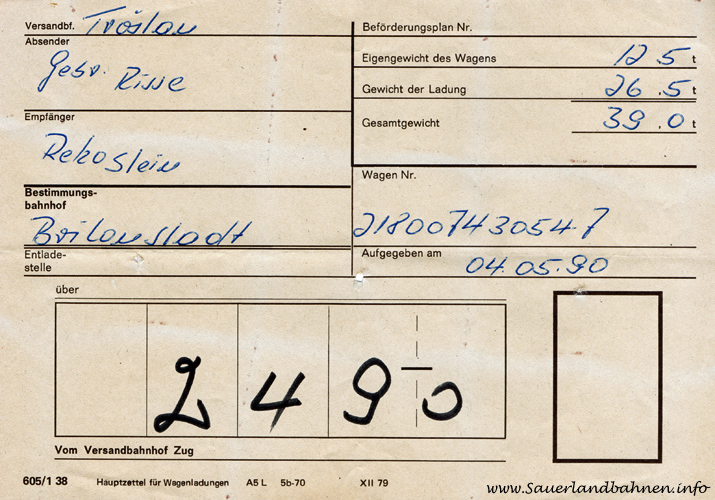 Versandbf. Tröslau
Absender
Gebr. Risse
Empfänger
Rekostein
Bestimmungs-
bahnhof
Brilonstadt
Entlade-
stelle
Beförderungsplan Nr.
Eigengewicht des Wagens 12 5 t
Gewicht der Ladung 26 .5 t
Gesamtgewicht 39 .0 t
Wagen Nr.
218007430547
Aufgegeben am
04.05.90
über
2 4 9 0
Vom Versandbahnhof Zug
605/1 38 Hauptzettel für Wagenladungen A5 L 5b-70 XII 79
www.Sauerlandbahnen.info